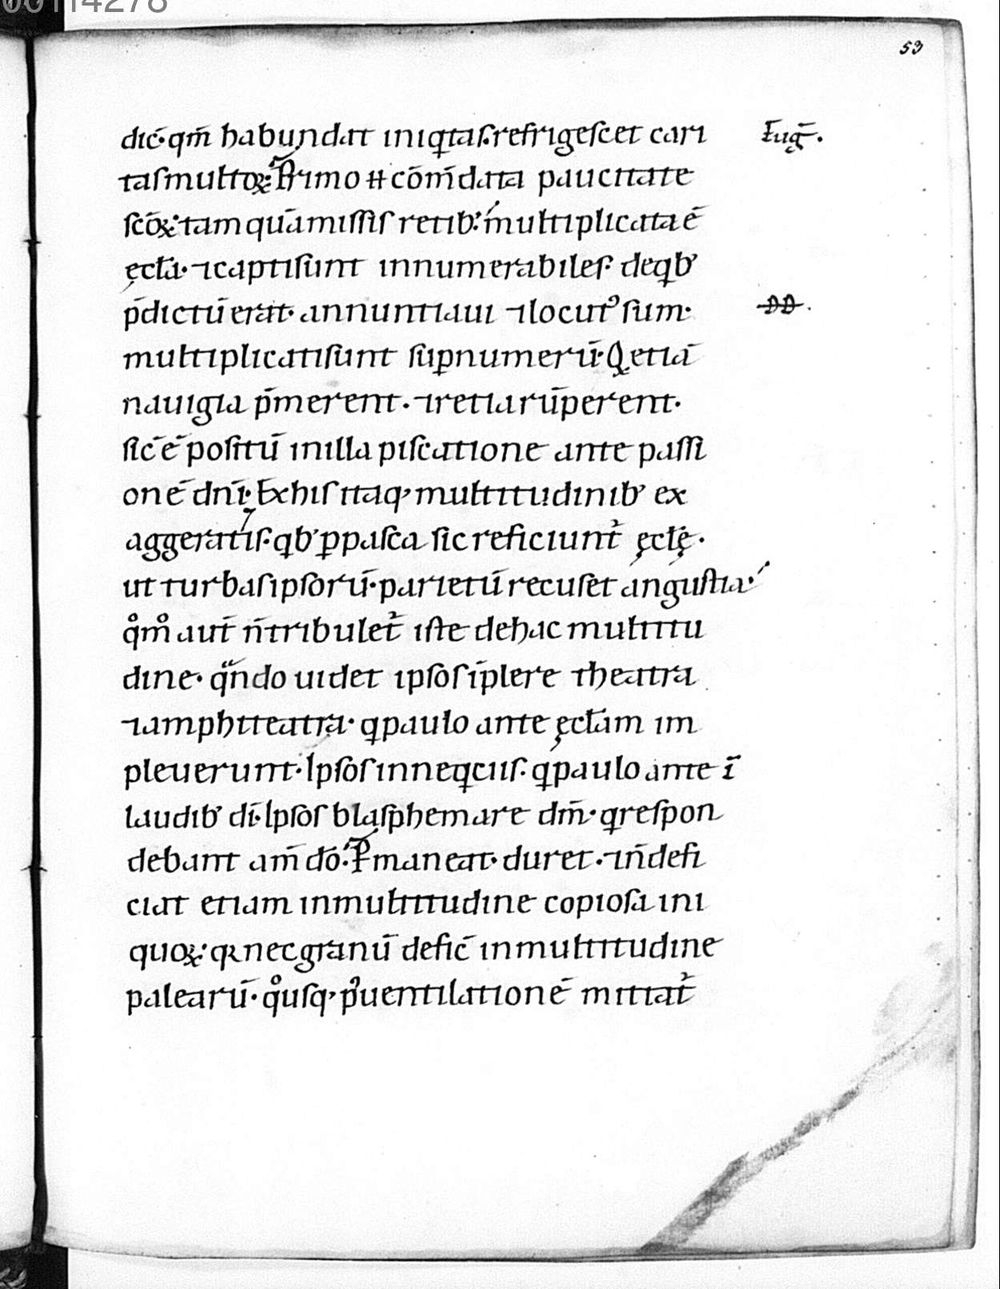 00114278
53
dic̄·qm̄ habundat iniq̇tas·refrigescet cari Eug̅.
tas multoꝝ· Primo ħ com̄data paucitate
sc̄oꝝ· tamquā missis retib; multiplicata ē
ęcła· ⁊captisunt innumerabiles· deqb;
p̄dictū erat· annuntiaui ⁊locutꝰ sum· DD.
multiplicatisunt sup numerū· Q etiā
nauigia p̄merent· ⁊retia rūperent·
sic̄ ē positū inilla piscatione ante passi
onē dn̄i· Ex his itaq; multitudinib; ex
aggeratis· qb; ꝑpasca sic reficiunt᷑ ęcłę·
ut turbas ipsorū· parietū recuset angustia·
qͦmͦ aut̄ n̄ tribulet᷑ iste dehac multitu
dine· qn̄do uidet ipsos īplere theatra
⁊amphiteatra· q paulo ante ęcłam im
pleuerunt· Ipsos inneqciis· q paulo ante ī
laudib; dī· Ipsos blasphemare dm̄· q respon
debant am̄ dō· Pmaneat· duret· ⁊n̄ defi
ciat etiam inmultitudine copiosa ini
quoꝝ· qꝛ nec granū defic̄ inmultitudine
palearū· qͦusq; pͦ uentilationē mittat᷑